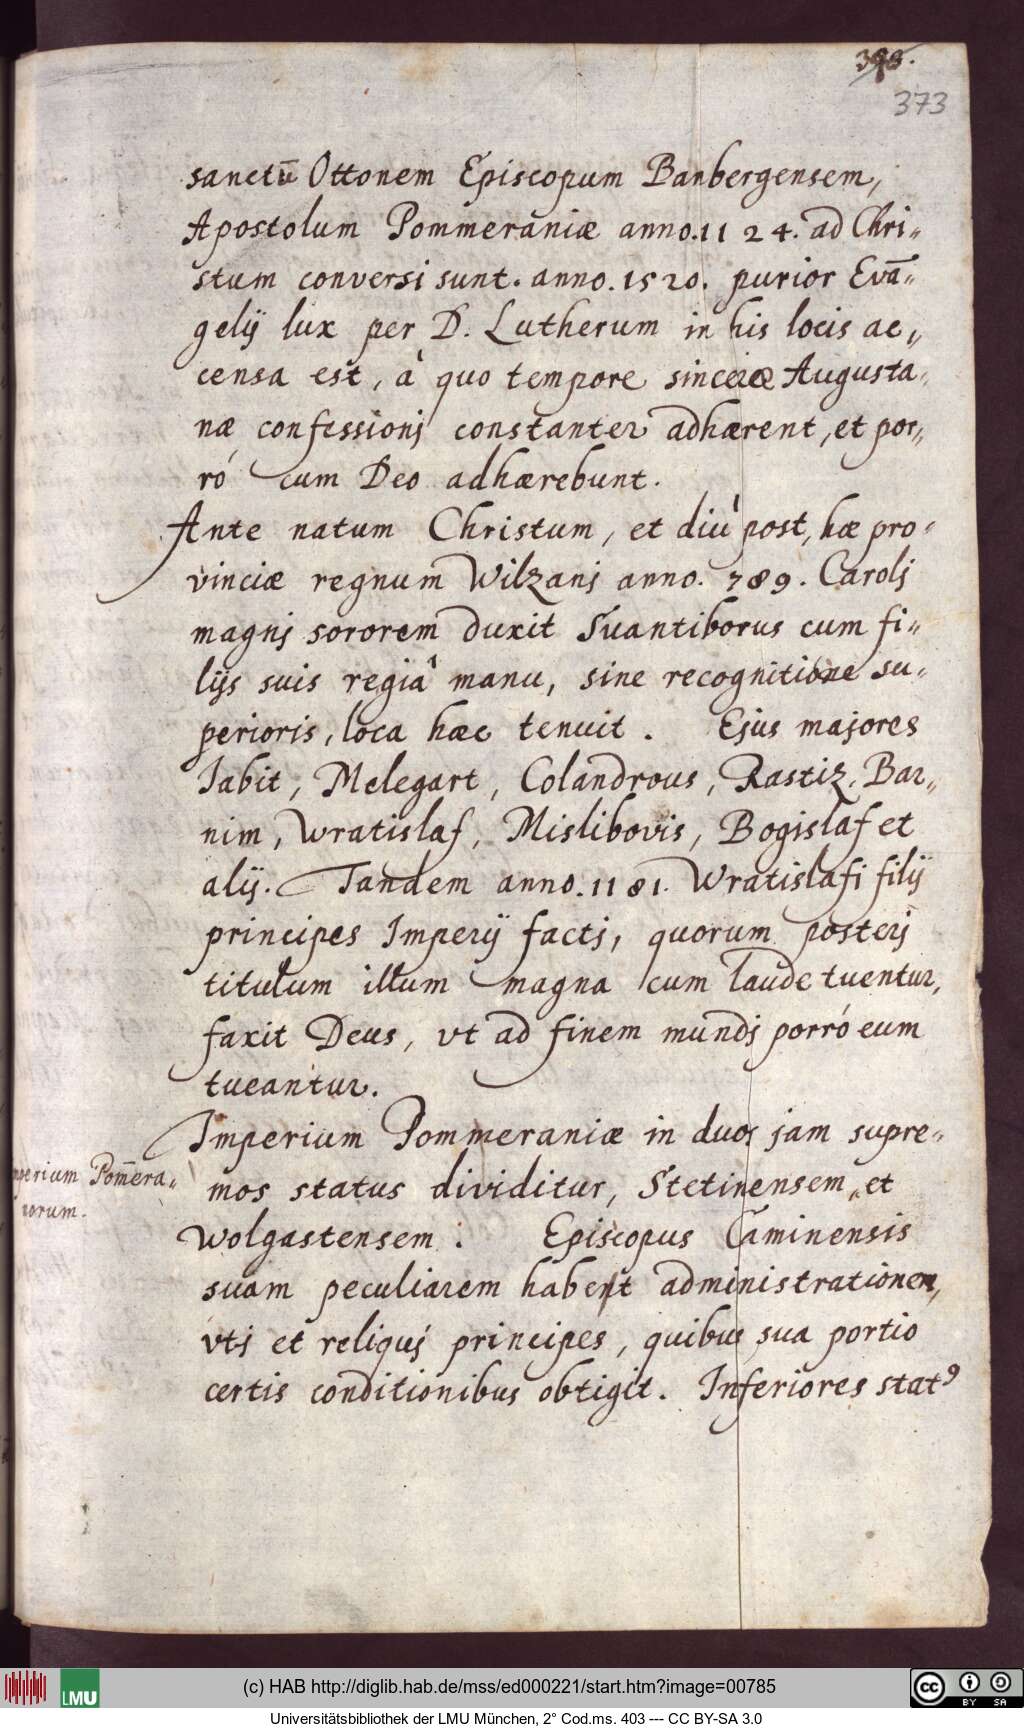 373
sanctū Ottonem Episcopum Banbergensem,
Apostolum Pommeraniæ anno. 1124. ad Chri„
stum conversi sunt. anno. 1520. purior Evā„
gelij lux per D. Lutherum in his locis ac„
censa est, à quo tempore sinceræ Augusta„
næ confessionj constanter adhærent, et por„
ró cum Deo adhærebunt.
Ante natum Christum, et diù post, hæ pro„
vinciæ regnum Wilzanj anno. 789. Carolj
magnj sororem duxit Suantiborus cum fi„
lijs suis regiâ manu, sine recognitione su„
perioris, loca hæc tenuit. Ejus majores
Iabit, Melegart, Colandrous, Rastiz, Bar„
nim, Wratislaf, Mislibovis, Bogislaf et
alij. Tandem anno. 1181. Wratislafi filij
principes Imperij factj, quorum posterj
titulum illum magna cum laude tuentur,
faxit Deus, vt ad finem mundj porró eum
tueantur.
Imperium Pommeraniæ in duos jam supre„
mos status dividitur, Stetinensem„ et
Wolgastensem. Episcopus Caminensis
suam peculiarem habent administrationem,
vtj et reliquj principes, quibus sua portio
certis conditionibus obtigit. Inferiores stat9
perium Pom̄era„
norum.
LMU
(c) HAB http://diglib.hab.de/mss/ed000221/start.htm?image=00785
cc BY SA
Universitätsbibliothek der LMU München, 2° Cod.ms. 403 --- CC BY-SA 3.0